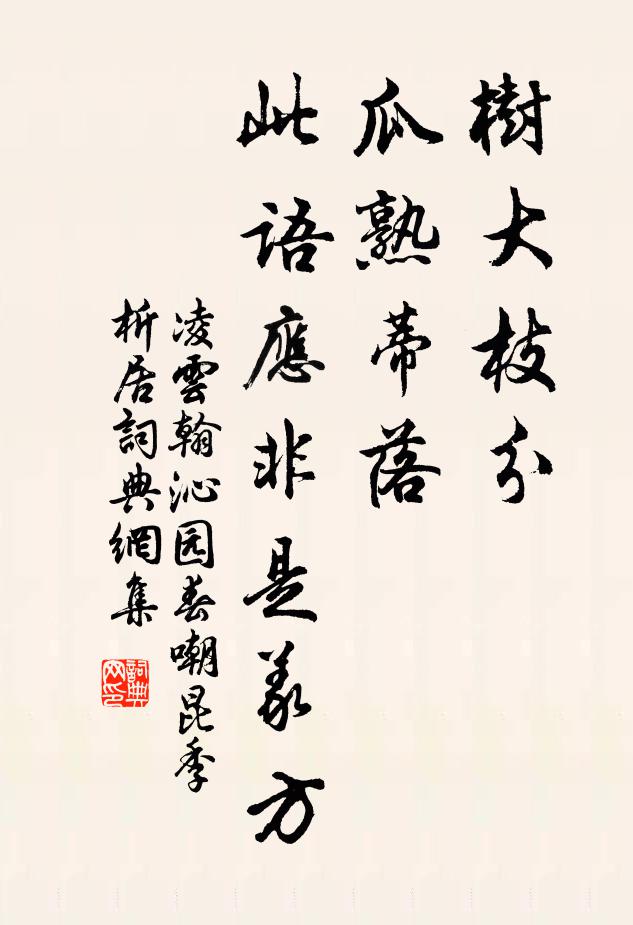 樹大枝分
瓜熟蒂落
此語應非是義方
凌雲翰沁园春嘲昆季
析居詞典網集
詞典网印